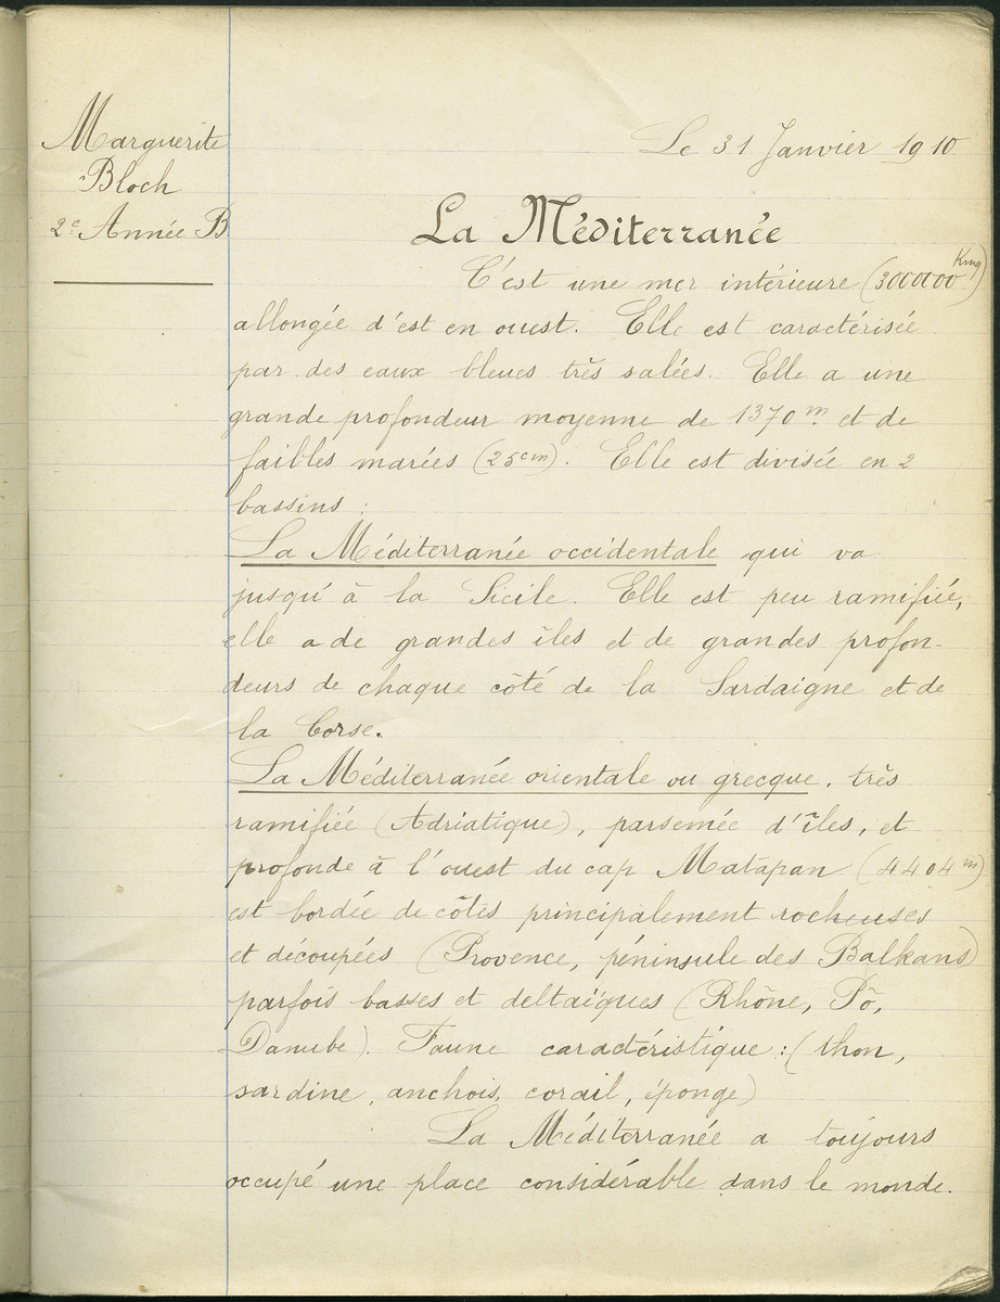 Marguerite
Bloch
2e Année B
Le 31 Janvier 1910
La Méditerranée
C'est une mer intérieure (3000000 Kmq)
allongée d'est en ouest. Elle est caractérisée
par des eaux bleues très salées. Elle a une
grande profondeur moyenne de 1370 m. et de
faibles marées (25cm). Elle est divisée en 2
bassins :
La Méditerranée occidentale qui va
jusqu'à la Sicile. Elle est peu ramifiée,
elle a de grandes îles et de grandes profon-
deurs de chaque côté de la Sardaigne et de
la Corse.
La Méditerranée orientale ou grecque, très
ramifiée (Adriatique), parsemée d'îles, et
profonde à l'ouest du cap Matapan (4404 m)
est bordée de côtes principalement rocheuses
et découpées (Provence, péninsule des Balkans)
parfois basses et deltaïques (Rhône, Pô,
Danube). Faune caractéristique : (thon,
sardine, anchois, corail, éponge)
La Méditerranée a toujours
occupé une place considérable dans le monde.